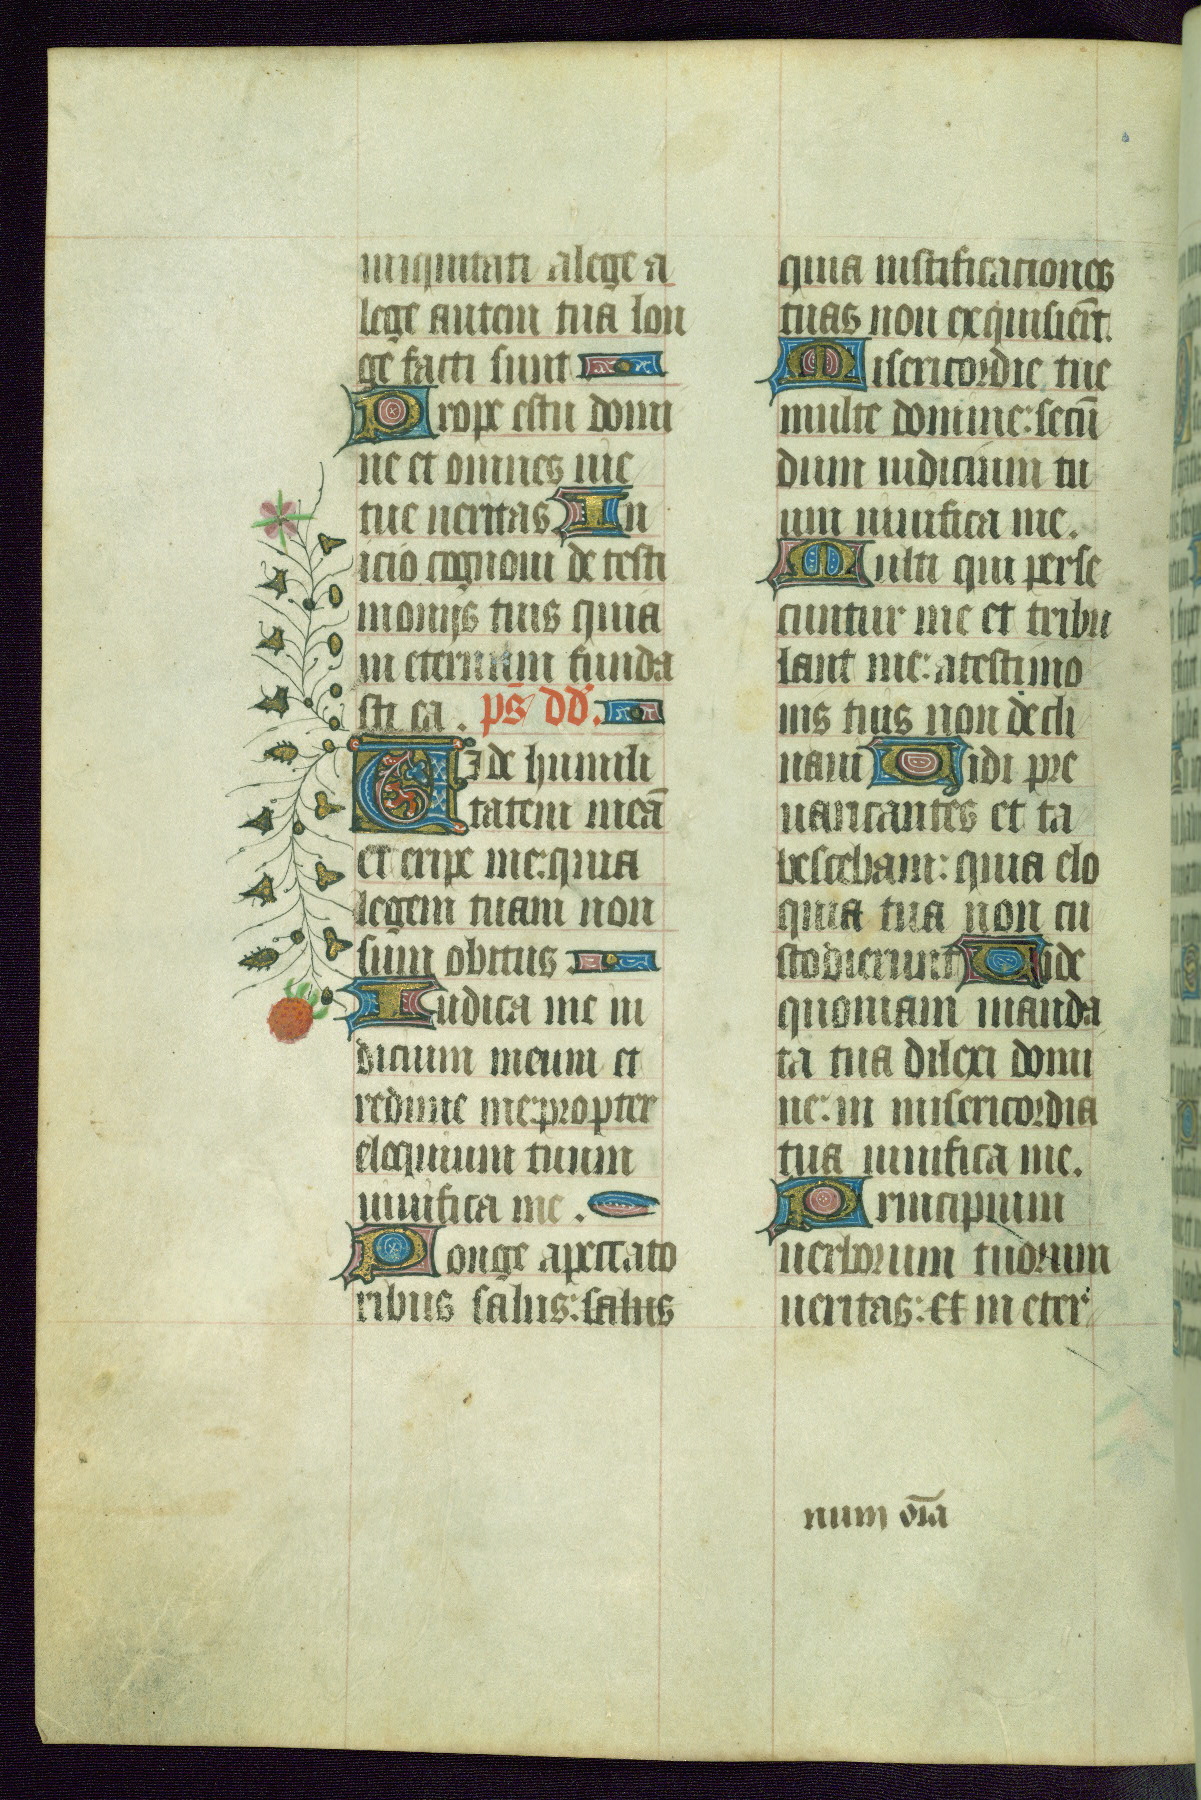 iniquitati alege a
lege autem tua lon
ge facti sunt
Prope es tu domi
ne et omnes uie
tue ueritas In
icio cognoui de testi
monijs tuis quia
in eternum funda
sti ea . ps̄ dd̄.
Uide humili
tatem meā
et eripe me: quia
legem tuam non
sum oblitus
Iudica me iu
dicium meum et
redime me: propter
eloquium tuum
uiuifica me .
Longe apeccato
ribus salus: salus
quia iustificationes
tuas non exquisierūt.
Misericordie tue
multe domine: secū
dum iudicium tu
um uiuifica me.
Multi qui perse
cuntur me et tribu
lant me: atestimo
nis tuis non decli
naui Uidi pre
uaricantes et ta
bescebam: quia elo
quia tua non cu
stodierunt Uide
quoniam manda
ta tua dilexi domi
ne: in misericordia
tua uiuifica me.
Principium
uerborum tuorum
ueritas: et in eter
num oīa